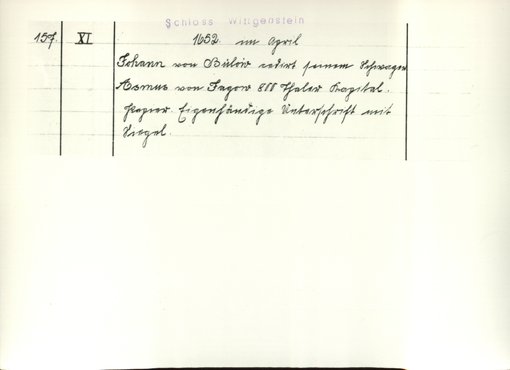 Schloss Wittgenstein
157. XI 1652. im April
Johann von Bülow cedirt seinem Schwager
Asmus von Jagow 800 Thaler Kapital.
Papier. Eigenhändige Unterschrift mit
Siegel.